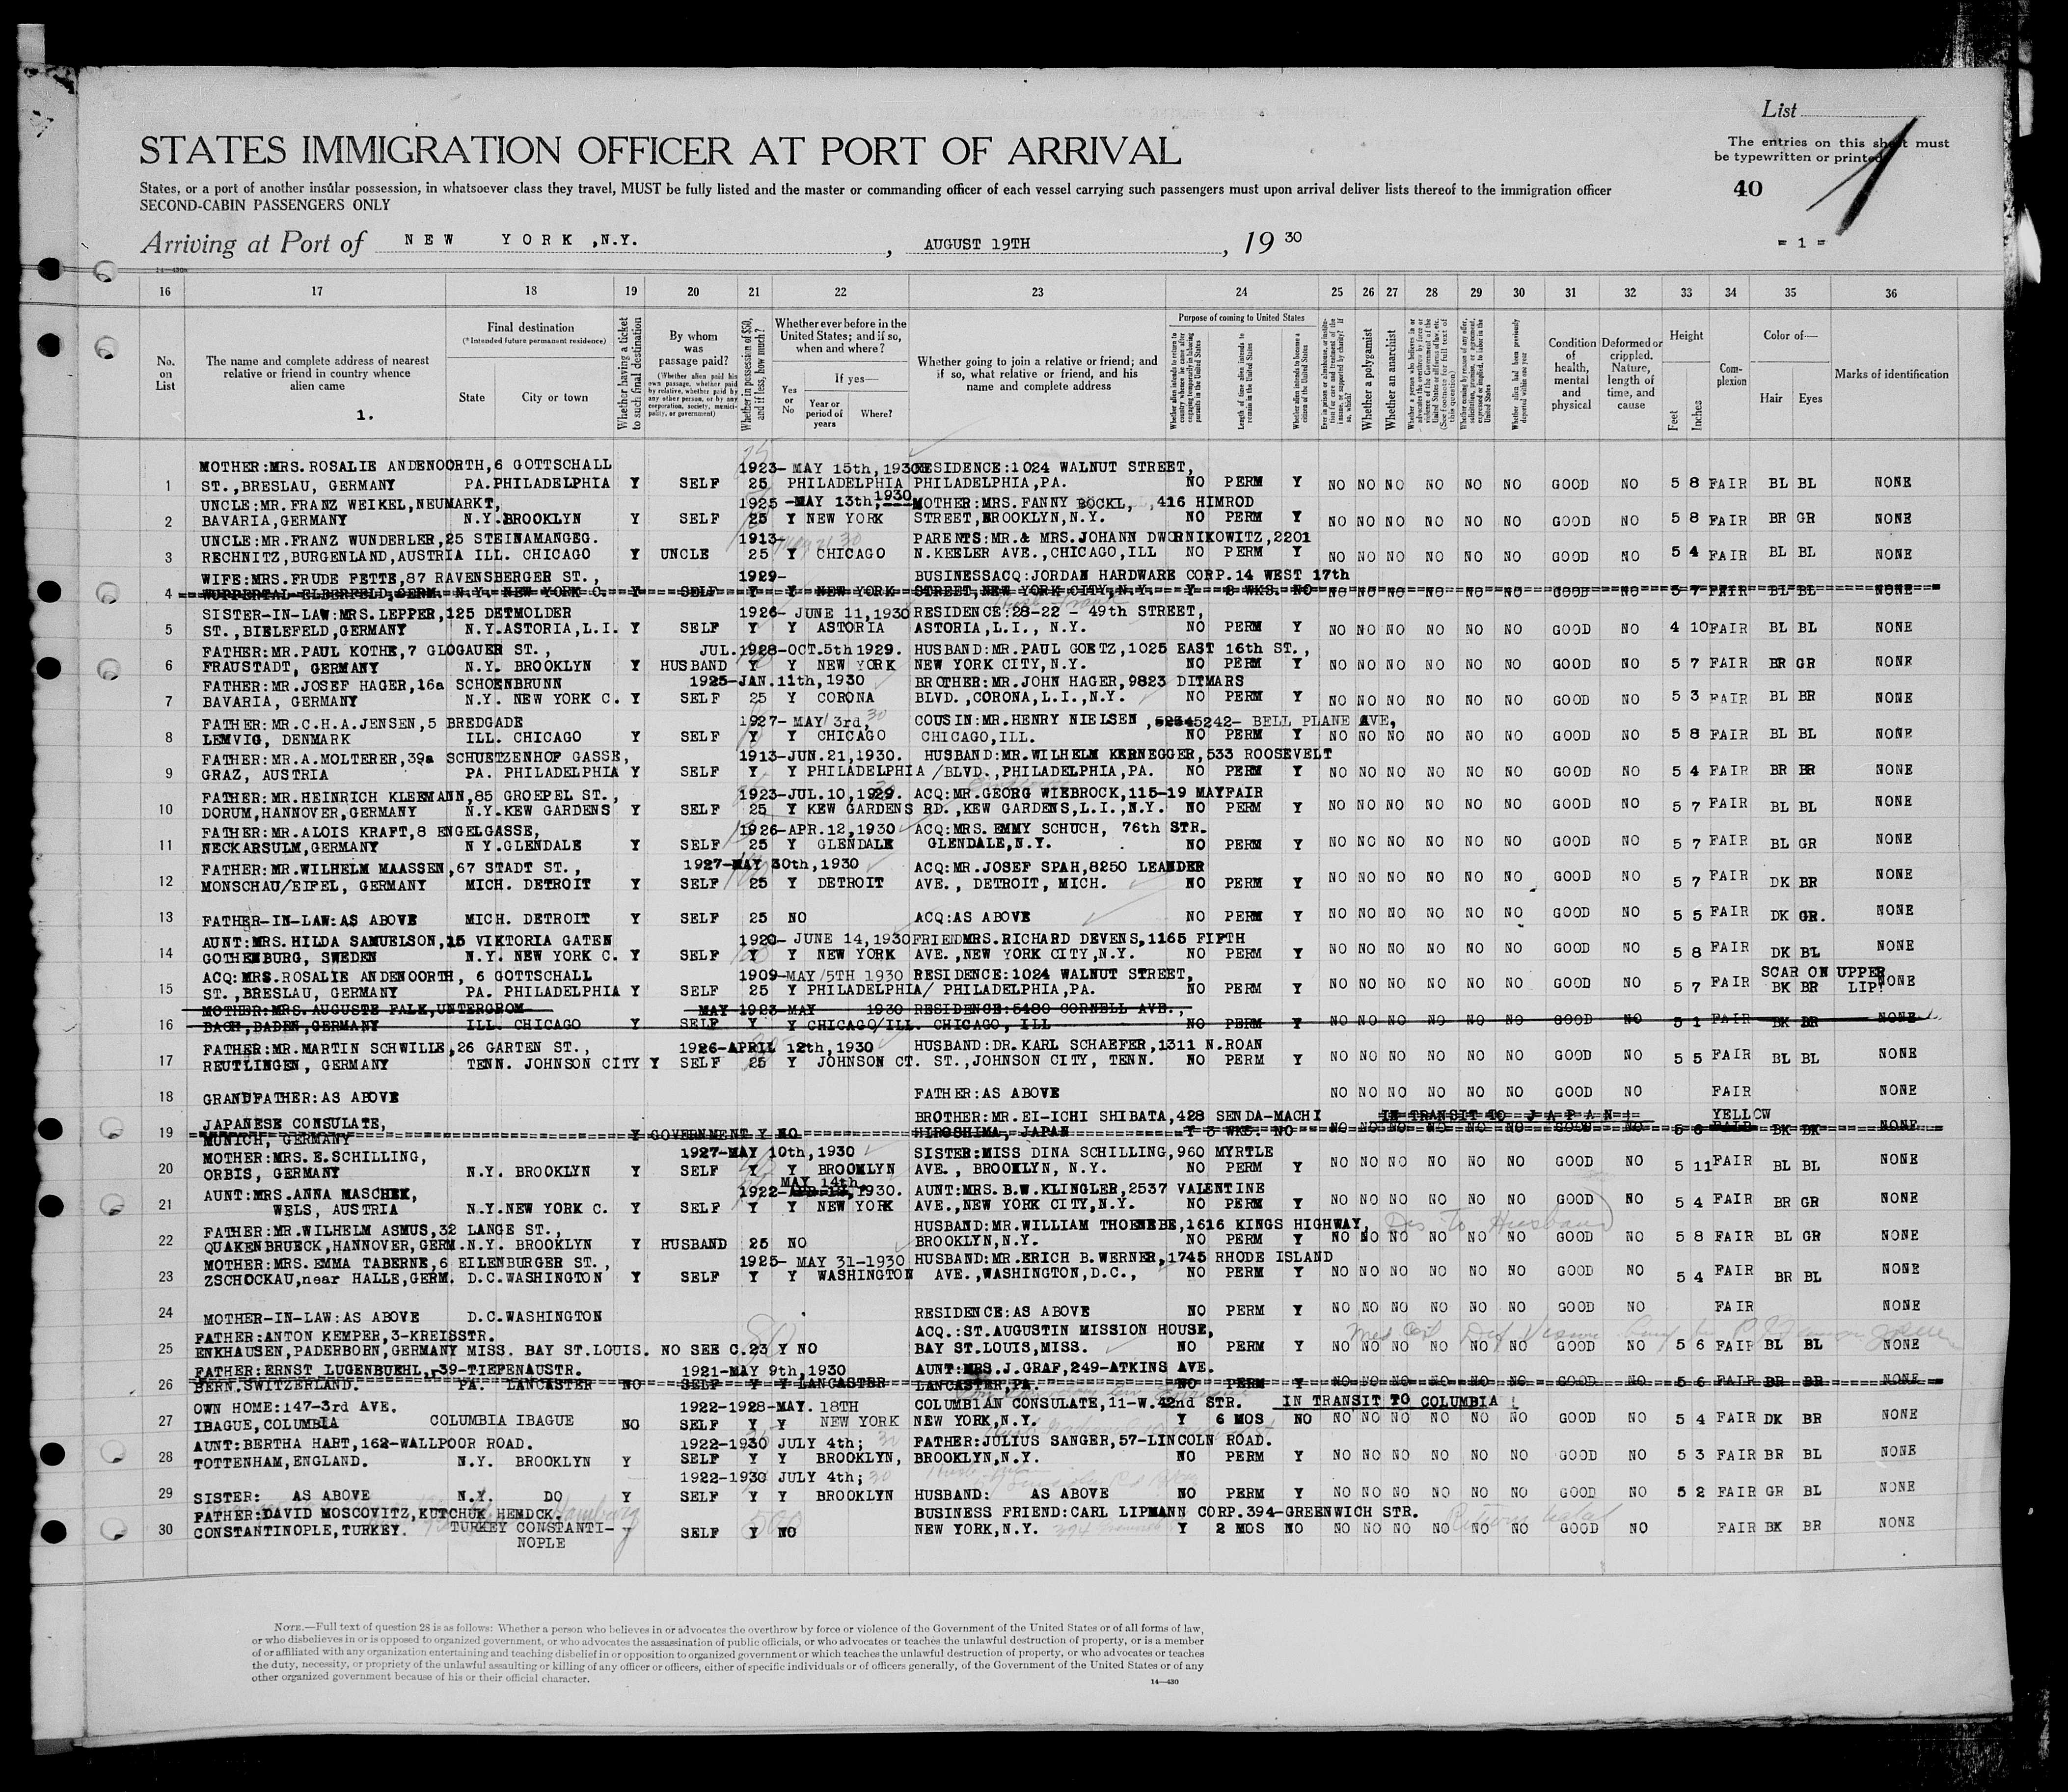 List
STATES IMMIGRATION OFFICER AT PORT OF ARRIVAL
The entries on this sheet must
be typewritten or printed
States, or a port of another insular possession, in whatsoever class they travel, MUST be fully listed and the master or commanding officer of each vessel carrying such passengers must upon arrival deliver lists thereof to the immigration officer
SECOND-CABIN PASSENGERS ONLY
40
1
Arriving at Port of NEW YORK ,N.Y. , AUGUST 19TH , 19 30
= 1 =
16 17 18 19 20 21 22 23 24 25 26 27 28 29 30 31 32 33 34 35 36
No. on List
The name and complete address of nearest relative or friend in country whence alien came
1.
Final destination
(* Intended future permanent residence)
State
City or town
Whether having a ticket to such final destination
By whom was passage paid?
(Whether alien paid his own passage, whether paid by relative, whether paid by any other person, or by any corporation, society, municipality, or government)
Whether in possession of $50, and if less, how much?
Whether ever before in the United States; and if so, when and where?
Yes or No
If yes—
Year or period of years
Where?
Whether going to join a relative or friend; and if so, what relative or friend, and his name and complete address
Purpose of coming to United States
Length of time alien intends to remain in the United States
Whether alien intends to become a citizen of the United States
Whether a polygamist
Whether an anarchist
Condition of health, mental and physical
Deformed or crippled. Nature, length of time, and cause
Height
Feet
Inches
Complexion
Color of—
Hair
Eyes
Marks of identification
MOTHER:MRS.ROSALIE ANDENOORTH,6 GOTTSCHALL 1923- MAY 15th,1930 RESIDENCE:1024 WALNUT STREET,
1 ST.,BRESLAU, GERMANY PA.PHILADELPHIA Y SELF 25 PHILADELPHIA PHILADELPHIA,PA. NO PERM Y NO NO NO NO NO NO GOOD NO 5 8 FAIR BL BL NONE
UNCLE:MR.FRANZ WEIKEL,NEUMARKT, 1925 -MAY 13th,1930 MOTHER:MRS.FANNY BOCKL, ,416 HIMROD
2 BAVARIA,GERMANY N.Y.BROOKLYN Y SELF 25 Y NEW YORK STREET,BROOKLYN,N.Y. NO PERM Y NO NO NO NO NO NO GOOD NO 5 8 FAIR BR GR NONE
UNCLE:MR.FRANZ WUNDERLER,25 STEINAMANGEG. 1913- PARENTS:MR.& MRS.JOHANN DWORNIKOWITZ,2201
3 RECHNITZ,BURGENLAND,AUSTRIA ILL. CHICAGO Y UNCLE 25 Y CHICAGO N.KEELER AVE.,CHICAGO,ILL NO PERM Y NO NO NO NO NO NO GOOD NO 5 4 FAIR BL BL NONE
WIFE:MRS.FRUDE FETTE,87 RAVENSBERGER ST., 1929- BUSINESSACQ:JORDAN HARDWARE CORP.14 WEST 17th
4 WUPPERTAL-ELBERFELD,GERM. N.Y. NEW YORK C. Y SELF Y Y NEW YORK STREET,NEW YORK CITY,N.Y. Y 8 WKS. NO NO NO NO NO NO NO GOOD NO 5 7 FAIR BL BL NONE
SISTER-IN-LAW:MRS.LEPPER,125 DETMOLDER 1926- JUNE 11,1930 RESIDENCE:28-22 - 49th STREET,
5 ST.,BIELEFELD,GERMANY N.Y.ASTORIA,L.I. Y SELF Y Y ASTORIA ASTORIA,L.I., N.Y. NO PERM Y NO NO NO NO NO NO GOOD NO 4 10 FAIR BL BL NONE
FATHER:MR.PAUL KOTHE,7 GLOGAUER ST., JUL.1928-OCT.5th 1929. HUSBAND:MR.PAUL GOETZ,1025 EAST 16th ST.,
6 FRAUSTADT, GERMANY N.Y. BROOKLYN Y HUSBAND Y Y NEW YORK NEW YORK CITY,N.Y. NO PERM Y NO NO NO NO NO NO GOOD NO 5 7 FAIR BR GR NONE
FATHER:MR.JOSEF HAGER,16a SCHOENBRUNN 1925-JAN.11th,1930 BROTHER:MR.JOHN HAGER,9823 DITMARS
7 BAVARIA, GERMANY N.Y. NEW YORK C. Y SELF 25 Y CORONA BLVD.,CORONA,L.I.,N.Y. NO PERM Y NO NO NO NO NO NO GOOD NO 5 3 FAIR BL BR NONE
FATHER:MR.C.H.A.JENSEN,5 BREDGADE 1927- MAY 3rd,30 COUSIN:MR.HENRY NIELSEN ,5242- BELL PLANE AVE,
8 LEMVIG, DENMARK ILL. CHICAGO Y SELF Y Y CHICAGO CHICAGO,ILL. NO PERM Y NO NO NO NO NO NO GOOD NO 5 8 FAIR BL BL NONE
FATHER:MR.A.MOLTERER,39a SCHUETZENHOF GASSE, 1913-JUN.21,1930. HUSBAND:MR.WILHELM KERNEGGER,533 ROOSEVELT
9 GRAZ, AUSTRIA PA. PHILADELPHIA Y SELF Y Y PHILADELPHIA /BLVD.,PHILADELPHIA,PA. NO PERM Y NO NO NO NO NO NO GOOD NO 5 4 FAIR BR BR NONE
FATHER:MR.HEINRICH KLEEMANN,85 GROEPEL ST., 1923-JUL.10,1929. ACQ:MR.GEORG WIEBROCK,115-19 MAYFAIR
10 DORUM,HANNOVER,GERMANY N.Y.KEW GARDENS Y SELF 25 Y KEW GARDENS RD.,KEW GARDENS,L.I.,N.Y. NO PERM Y NO NO NO NO NO NO GOOD NO 5 7 FAIR BL BL NONE
FATHER:MR.ALOIS KRAFT,8 ENGELGASSE, 1926-APR.12,1930 ACQ:MRS.EMMY SCHUCH, 76th STR.
11 NECKARSULM,GERMANY N Y.GLENDALE Y SELF 25 Y GLENDALE GLENDALE,N.Y. NO PERM Y NO NO NO NO NO NO GOOD NO 5 7 FAIR BL GR NONE
FATHER:MR.WILHELM MAASSEN,67 STADT ST., 1927-MAY 30th,1930 ACQ:MR.JOSEF SPAH,8250 LEANDER
12 MONSCHAU/EIFEL, GERMANY MICH. DETROIT Y SELF 25 Y DETROIT AVE., DETROIT, MICH. NO PERM Y NO NO NO NO NO NO GOOD NO 5 7 FAIR DK BR NONE
13 FATHER-IN-LAW:AS ABOVE MICH. DETROIT Y SELF 25 NO ACQ:AS ABOVE NO PERM Y NO NO NO NO NO NO GOOD NO 5 5 FAIR DK GR. NONE
AUNT:MRS.HILDA SAMUELSON,15 VIKTORIA GATEN 1920- JUNE 14,1930 FRIENDMRS.RICHARD DEVENS,1165 FIFTH
14 GOTHENBURG, SWEDEN N.Y. NEW YORK C. Y SELF Y Y NEW YORK AVE.,NEW YORK CITY,N.Y. NO PERM Y NO NO NO NO NO NO GOOD NO 5 8 FAIR DK BL NONE
ACQ:MRS.ROSALIE ANDENOORTH, 6 GOTTSCHALL 1909-MAY/5TH 1930 RESIDENCE:1024 WALNUT STREET, SCAR ON UPPER
15 ST.,BRESLAU, GERMANY PA. PHILADELPHIA Y SELF 25 Y PHILADELPHIA/ PHILADELPHIA,PA. NO PERM Y NO NO NO NO NO NO GOOD NO 5 7 FAIR BK BR LIP! NONE
MOTHER:MRS.AUGUSTE FALK,UNTERGROM MAY 1923-MAY 1930 RESIDENCE:5480 CORNELL AVE.,
16 BACH,BADEN,GERMANY ILL. CHICAGO Y SELF Y Y CHICAGO/ILL. CHICAGO, ILL NO PERM Y NO NO NO NO NO NO GOOD NO 5 1 FAIR BK BR NONE
FATHER:MR.MARTIN SCHWILLE,26 GARTEN ST., 1926-APRIL 12th,1930 HUSBAND:DR.KARL SCHAEFER,1311 N.ROAN
17 REUTLINGEN, GERMANY TENN. JOHNSON CITY Y SELF 25 Y JOHNSON CT. ST.,JOHNSON CITY, TENN. NO PERM Y NO NO NO NO NO NO GOOD NO 5 5 FAIR BL BL NONE
18 GRANDFATHER:AS ABOVE FATHER:AS ABOVE NO NO NO NO NO NO GOOD NO FAIR NONE
JAPANESE CONSULATE, BROTHER:MR.EI-ICHI SHIBATA,428 SENDA-MACHI IN TRANSIT TO JAPAN! YELLOW
19 MUNICH, GERMANY Y GOVERNMENT Y NO HIROSHIMA, JAPAN Y 3 WKS. NO NO NO NO NO NO NO GOOD NO 5 6 FAIR BK BK NONE
MOTHER:MRS.E.SCHILLING, 1927-MAY 10th,1930 SISTER:MISS DINA SCHILLING,960 MYRTLE
20 ORBIS, GERMANY N.Y. BROOKLYN Y SELF Y Y BROOKLYN AVE., BROOKLYN, N.Y. NO PERM Y NO NO NO NO NO NO GOOD NO 5 11 FAIR BL BL NONE
MAY 14th
AUNT:MRS.ANNA MASCHEK, 1922- ,1930. AUNT:MRS.B.W.KLINGLER,2537 VALENTINE
21 WELS, AUSTRIA N.Y.NEW YORK C. Y SELF Y Y NEW YORK AVE.,NEW YORK CITY,N.Y. NO PERM Y NO NO NO NO NO NO GOOD NO 5 4 FAIR BR GR NONE
FATHER:MR.WILHELM ASMUS,32 LANGE ST., HUSBAND:MR.WILLIAM THOENEBE,1616 KINGS HIGHWAY, Dis to Husband
22 QUAKENBRUECK,HANNOVER,GERM.N.Y. BROOKLYN Y HUSBAND 25 NO BROOKLYN,N.Y. NO PERM Y NO NO NO NO NO NO GOOD NO 5 8 FAIR BL GR NONE
MOTHER:MRS.EMMA TABERNE,6 EILENBURGER ST., 1925- MAY 31-1930 HUSBAND:MR.ERICH B.WERNER,1745 RHODE ISLAND
23 ZSCHOCKAU,near HALLE,GERM. D.C.WASHINGTON Y SELF Y Y WASHINGTON AVE.,WASHINGTON,D.C., NO PERM Y NO NO NO NO NO NO GOOD NO 5 4 FAIR BR BL NONE
24 MOTHER-IN-LAW:AS ABOVE D.C.WASHINGTON RESIDENCE:AS ABOVE NO PERM Y NO NO NO NO NO NO GOOD NO FAIR NONE
FATHER:ANTON KEMPER,3-KREISSTR. ACQ.:ST.AUGUSTIN MISSION HOUSE,
25 ENKHAUSEN,PADERBORN,GERMANY MISS. BAY ST.LOUIS. NO SEE C.23 Y NO BAY ST.LOUIS,MISS. NO PERM Y NO NO NO NO NO NO GOOD NO 5 6 FAIR BL BL NONE
FATHER:ERNST LUGENBUEHL,39-TIEFENAUSTR. 1921-MAY 9th,1930 AUNT:MRS.J.GRAF,249-ATKINS AVE.
26 BERN.SWITZERLAND. PA. LANCASTER NO SELF Y Y LANCASTER LANCASTER,PA NO PERM Y NO NO NO NO NO NO GOOD NO 5 6 FAIR BR BR NONE
OWN HOME:147-3rd AVE. 1922-1928-MAY. 18TH COLUMBIAN CONSULATE,11-W.42nd STR. IN TRANSIT TO COLUMBIA !
27 IBAGUE,COLUMBIA COLUMBIA IBAGUE NO SELF Y Y NEW YORK NEW YORK,N.Y. Y 6 MOS NO NO NO NO NO NO NO GOOD NO 5 4 FAIR DK BR NONE
AUNT:BERTHA HART,162-WALLPOOR ROAD. 1922-1930 JULY 4th; 30 FATHER:JULIUS SANGER,57-LINCOLN ROAD.
28 TOTTENHAM,ENGLAND. N.Y. BROOKLYN Y SELF Y Y BROOKLYN, BROOKLYN,N.Y. NO PERM Y NO NO NO NO NO NO GOOD NO 5 3 FAIR BR BL NONE
1922-1930 JULY 4th; 30
29 SISTER: AS ABOVE N.Y. DO Y SELF Y Y BROOKLYN HUSBAND: AS ABOVE NO PERM Y NO NO NO NO NO NO GOOD NO 5 2 FAIR GR BL NONE
FATHER:DAVID MOSCOVITZ,KUTCHUK HENDCK BUSINESS FRIEND:CARL LIPMANN CORP.394-GREENWICH STR.
30 CONSTANTINOPLE,TURKEY. TURKEY CONSTANTI- Y SELF Y NO NEW YORK,N.Y. Y 2 MOS NO NO NO NO NO NO NO GOOD NO FAIR BK BR NONE
NOPLE
NOTE.—Full text of question 28 is as follows: Whether a person who believes in or advocates the overthrow by force or violence of the Government of the United States or of all forms of law,
or who disbelieves in or is opposed to organized government, or who advocates the assassination of public officials, or who advocates or teaches the unlawful destruction of property, or is a member
of or affiliated with any organization entertaining and teaching disbelief in or opposition to organized government or which teaches the unlawful destruction of property, or who advocates or teaches
the duty, necessity, or propriety of the unlawful assaulting or killing of any officer or officers, either of specific individuals or of officers generally, of the Government of the United States or of any
other organized government because of his or their official character.
14—430